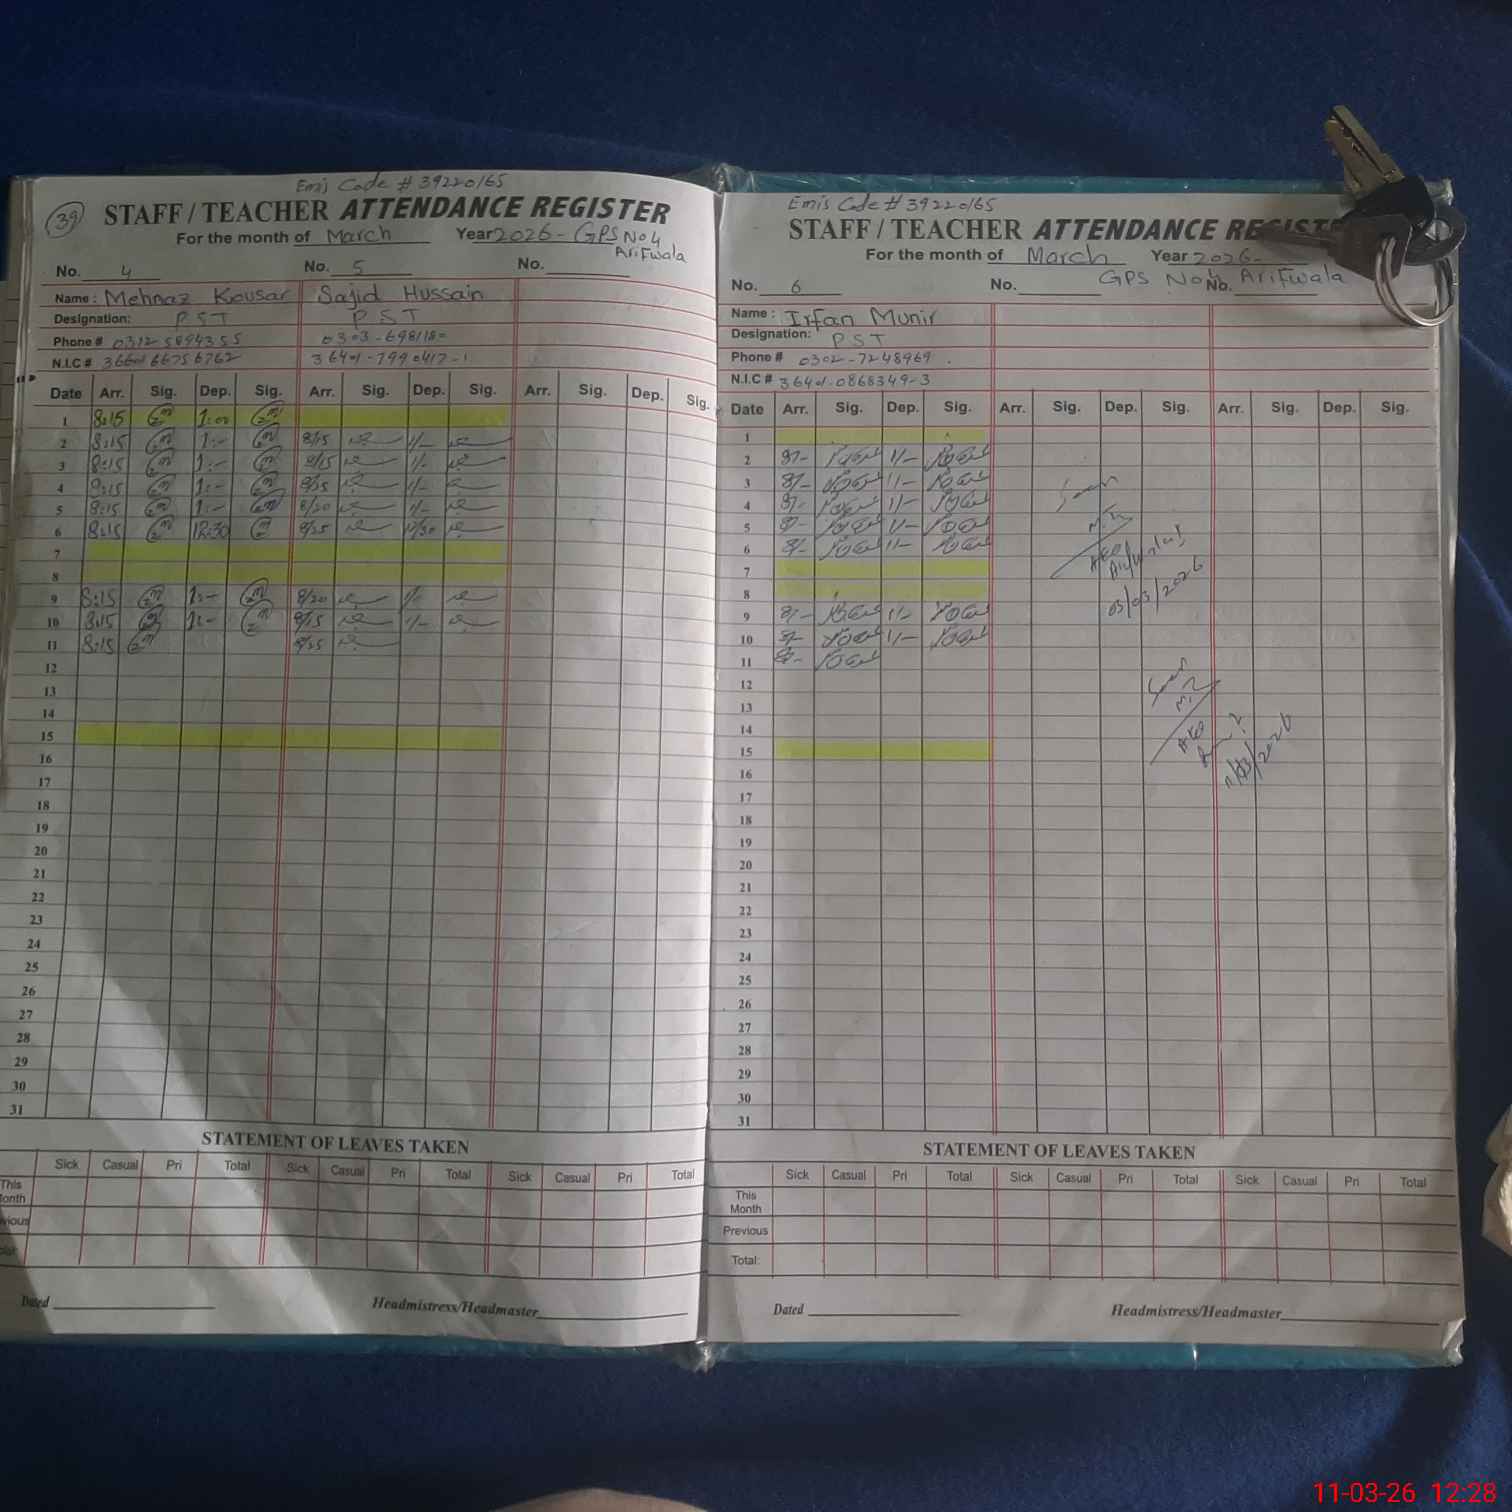 Emis Code # 39220165
39
STAFF / TEACHER ATTENDANCE REGISTER
For the month of March Year 2026 - GPS No 4
Arifwala
No. 4 No. 5 No.
Name : Mehnaz Kousar Sajid Hussain
Designation: PST PST
Phone # 0312 5894355
N.I.C #
Date Arr. Sig. Dep. Sig. Arr. Sig. Dep. Sig. Arr. Sig. Dep. Sig.
1 8:15 1:00
2 8:15 1:- 8/15 1/-
3 8:15 1:- 8/15 1/-
4 8:15 1:- 8/25 1/-
5 8:15 1:- 8/20 1/-
6 8:15 12:30 8/25 12/30
7
8
9 8:15 1:- 8/20 1/-
10 8:15 1:- 8/15 1/-
11 8:15 8/25
12
13
14
15
16
17
18
19
20
21
22
23
24
25
26
27
28
29
30
31
STATEMENT OF LEAVES TAKEN
Sick Casual Pri Total Sick Casual Pri Total Sick Casual Pri Total
This
onth
vious
Dated Headmistress/Headmaster
Emis Code # 39220165
STAFF / TEACHER ATTENDANCE REGISTE
For the month of March Year 2026-
GPS No 4 Arifwala
No. 6 No. No.
Name : Irfan Munir
Designation: PST
Phone # 0302-7248969
N.I.C # 36401-0868349-3
Date Arr. Sig. Dep. Sig. Arr. Sig. Dep. Sig. Arr. Sig. Dep. Sig.
1
2 8/- 1/-
3 8/- 1/-
4 8/- 1/-
5 8/- 1/-
6 8/- 1/-
7
8
9 8/- 1/-
10 8/- 1/-
11 8/-
12
13
14
15
16
17
18
19
20
21
22
23
24
25
26
27
28
29
30
31
Seen
AEO
03/03/2026
Seen
AEO
11/03/2026
STATEMENT OF LEAVES TAKEN
Sick Casual Pri Total Sick Casual Pri Total Sick Casual Pri Total
This
Month
Previous
Total:
Dated Headmistress/Headmaster
11-03-26 12:28